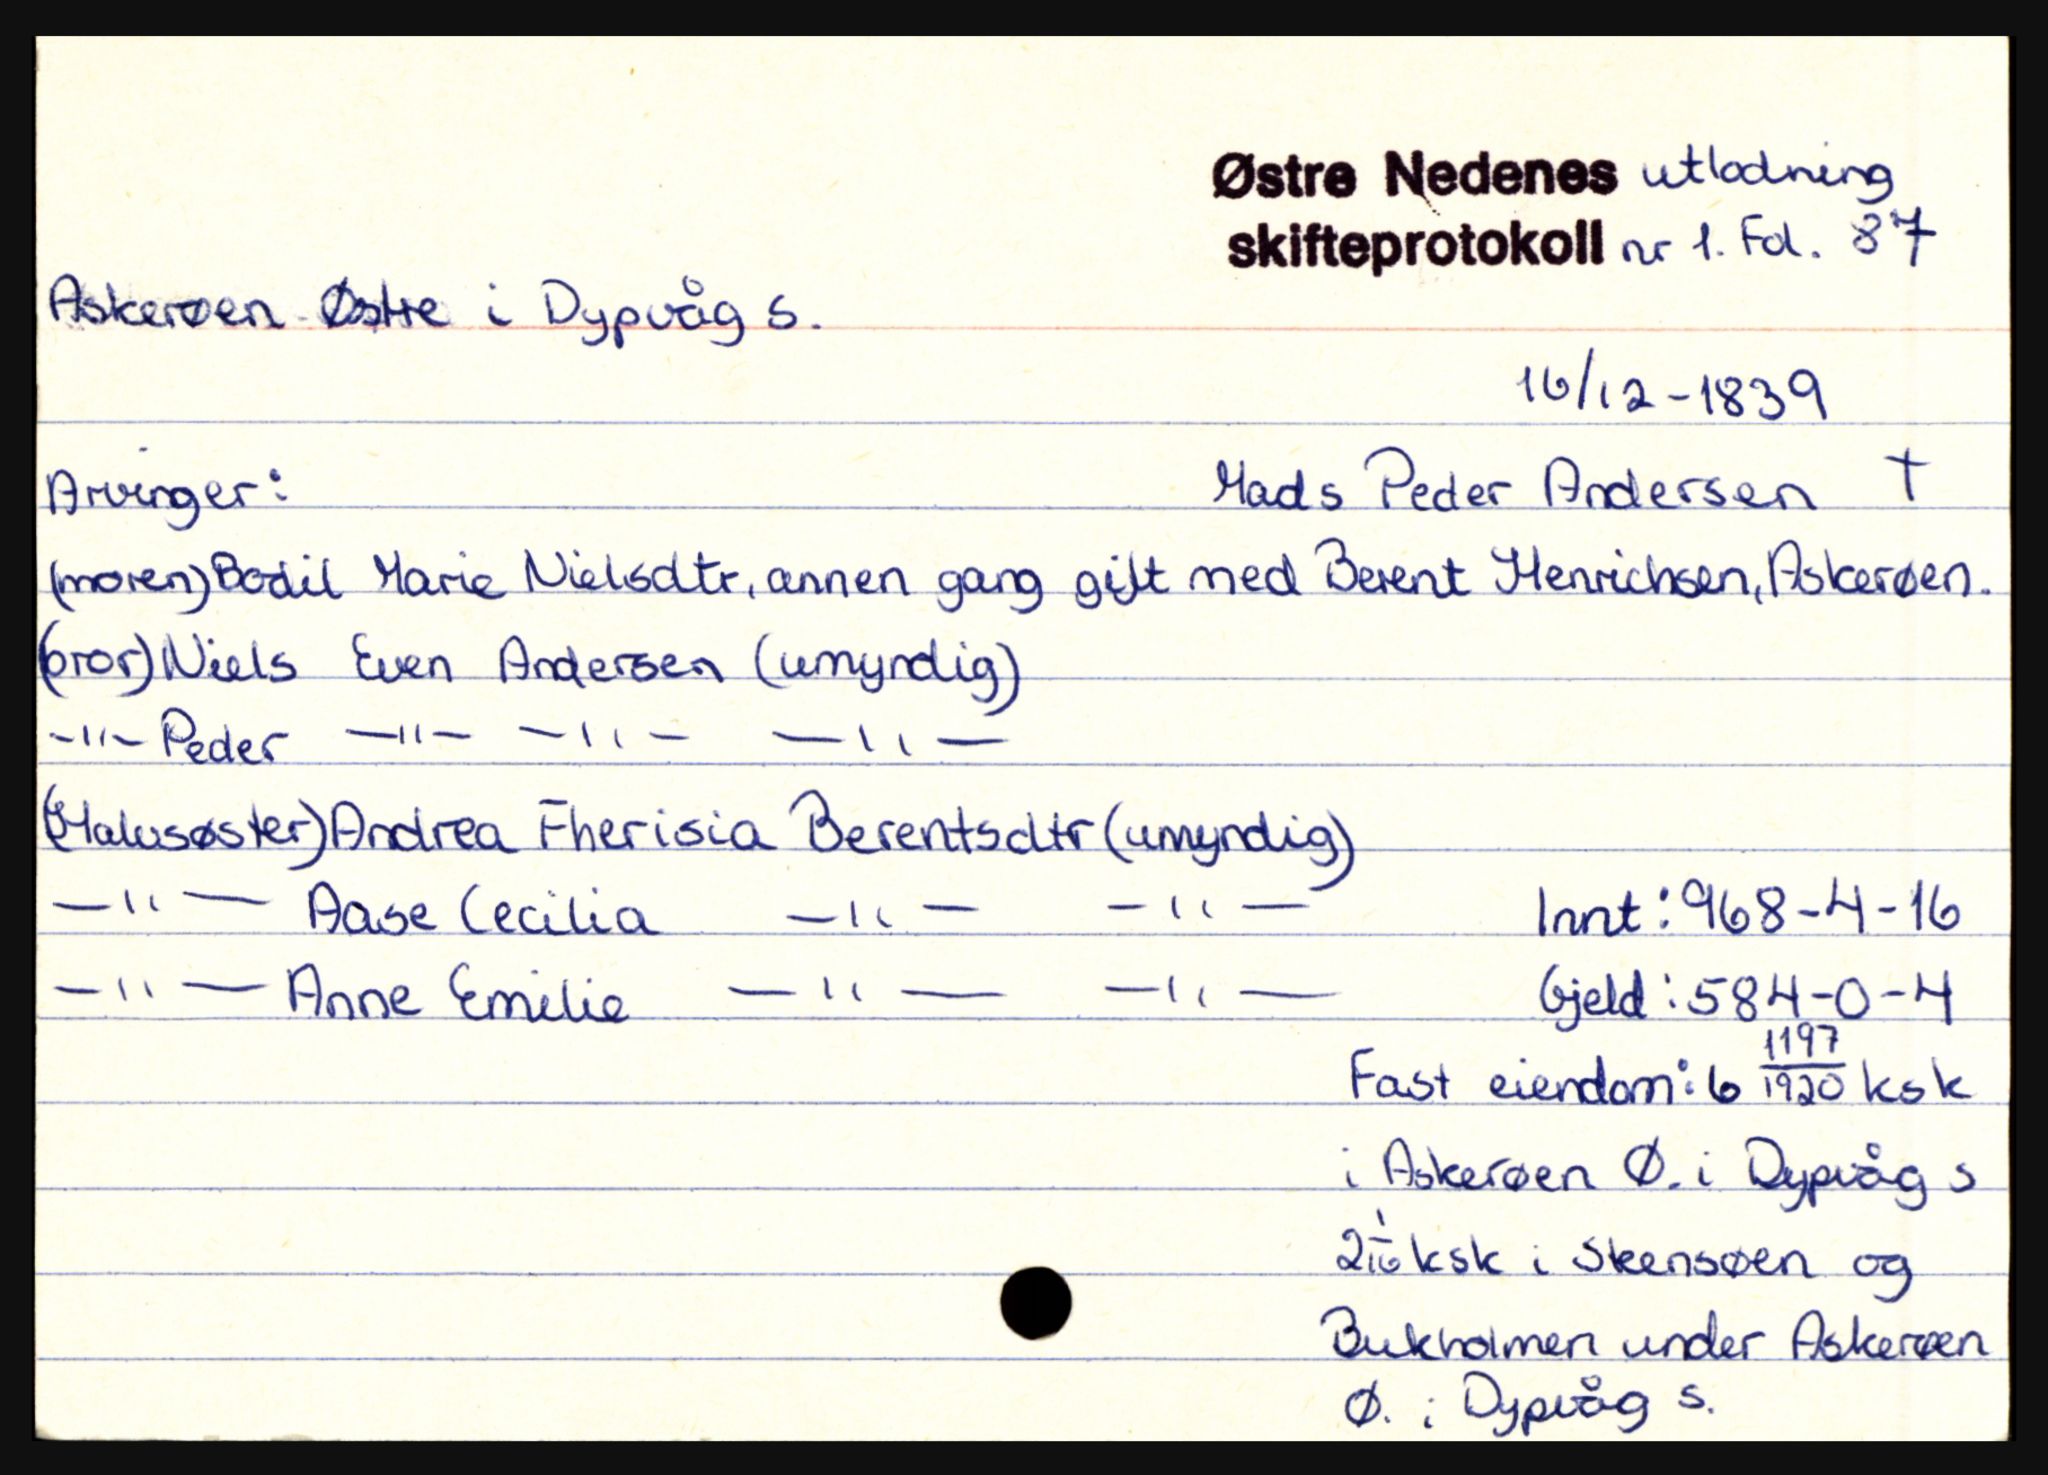 Østre Nedenes utlodning
skifteprotokoll nr 1. Fol. 87
Askerøen Østre i Dypvåg s.
16/12-1839
Arvinger:
Mads Peder Andersen †
(moren) Bodil Marie Nielsdtr, annen gang gift med Berent Henrichsen, Askerøen.
(bror) Niels Even Andersen (umyndig)
-"- Peder -"- -"- -"-
(Halvsøster) Andrea Fherisia Berentsdtr (umyndig)
-"- Aase Cecilia -"- -"-
Innt: 968-4-16
-"- Anne Emilie -"- -"-
Gjeld: 584-0-4
Fast eiendom: 6 1197/1920 ksk
i Askerøen Ø. i Dypvåg s
2 1/16 ksk i Steensøen og
Bukholmen under Askerøen
Ø. i Dypvåg s.